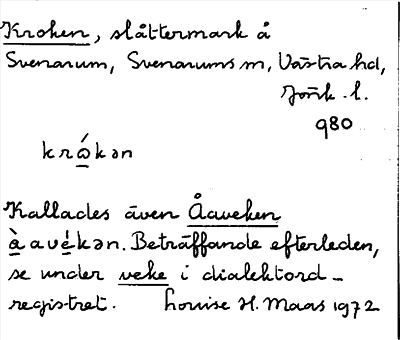 Kroken, slåttermark å
Svenarum, Svenarums sn, Västra hd,
Jönk. l.
980
krώkən
Kallades även Åaveken
à̱ a v é̱ kən. Beträffande efterleden,
se under veke i dialektord-
registret. Louise H. Maas 1972